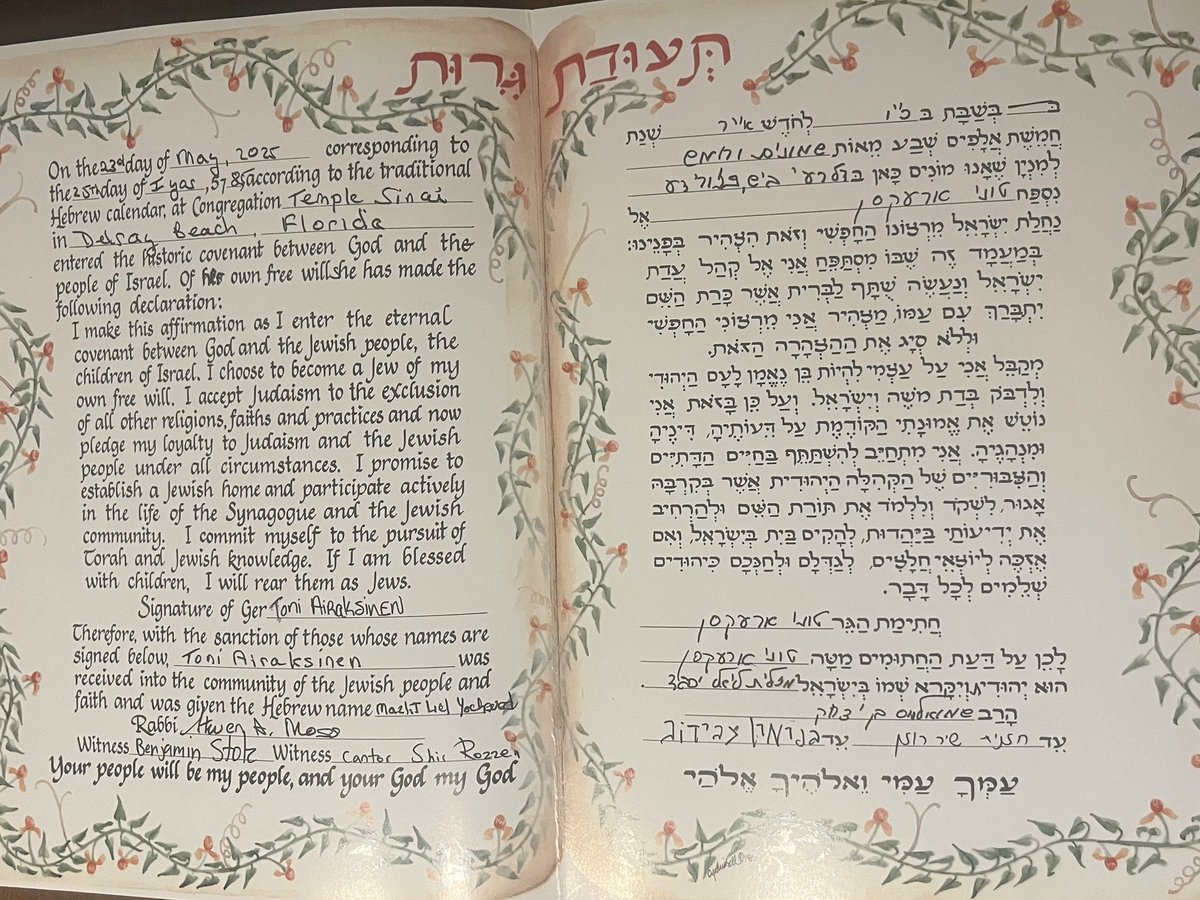 תְּעוּדַת גֵּרוּת
On the 23rd day of May, 2025 corresponding to
the 25th day of Iyar, 5785 according to the traditional
Hebrew calendar, at Congregation Temple Sinai
in Delray Beach, Florida
entered the historic covenant between God and the
people of Israel. Of her own free will she has made the
following declaration:
I make this affirmation as I enter the eternal
covenant between God and the Jewish people, the
children of Israel. I choose to become a Jew of my
own free will. I accept Judaism to the exclusion
of all other religions, faiths and practices and now
pledge my loyalty to Judaism and the Jewish
people under all circumstances. I promise to
establish a Jewish home and participate actively
in the life of the Synagogue and the Jewish
community. I commit myself to the pursuit of
Torah and Jewish knowledge. If I am blessed
with children, I will rear them as Jews.
Signature of Ger Toni Airaksinen
Therefore, with the sanction of those whose names are
signed below, Toni Airaksinen was
received into the community of the Jewish people and
faith and was given the Hebrew name Liel Yocheved
Rabbi Moss
Witness Benjamin Stolz Witness Cantor Shir Rozzen
Your people will be my people, and your God my God
בְּשַׁבָּת לְחֹדֶשׁ אייר שְׁנַת
חֲמֵשֶׁת אֲלָפִים שְׁבַע מֵאוֹת שמונים וחמש
לְמִנְיָן שֶׁאָנוּ מוֹנִים כָּאן
נִסְפַּח טוני ארעקסן אֶל
נַחֲלַת יִשְׂרָאֵל מֵרְצוֹנוֹ הַחָפְשִׁי וְזֹאת הִצְהִיר בְּפָנֵינוּ:
בְּמַעֲמָד זֶה שֶׁבּוֹ מִסְתַּפֵּחַ אֲנִי אֶל קְהַל עֲדַת
יִשְׂרָאֵל וְנַעֲשֶׂה שֻׁתָּף לַבְּרִית אֲשֶׁר כָּרַת הַשֵּׁם
יִתְבָּרַךְ עִם עַמּוֹ, מַצְהִיר אֲנִי מֵרְצוֹנִי הַחָפְשִׁי
וּלְלֹא סְיָג אֶת הַהַצְהָרָה הַזֹּאת.
מְקַבֵּל אֲנִי עַל עַצְמִי לִהְיוֹת בֵּן נֶאֱמָן לָעָם הַיְּהוּדִי
וְלִדְבֹּק בְּדַת מֹשֶׁה וְיִשְׂרָאֵל. וְעַל כֵּן בָּזֹאת אֲנִי
נוֹטֵשׁ אֶת אֱמוּנָתִי הַקּוֹדֶמֶת עַל דֵּעוֹתֶיהָ, דִּינֶיהָ
וּמִנְהָגֶיהָ. אֲנִי מִתְחַיֵּב לְהִשְׁתַּתֵּף בַּחַיִּים הַדָּתִיִּים
וְהַצִּבּוּרִיִּים שֶׁל הַקְּהִלָּה הַיְּהוּדִית אֲשֶׁר בְּקִרְבָּהּ
אָגוּר, לִשְׁקֹד וְלִלְמֹד אֶת תּוֹרַת הַשֵּׁם וּלְהַרְחִיב
אֶת יְדִיעוֹתַי בַּיַּהֲדוּת, לְהָקִים בַּיִת בְּיִשְׂרָאֵל, וְאִם
אֶזְכֶּה לְיוֹצְאֵי חֲלָצַיִם, לְגַדְּלָם וּלְחַנְּכָם כִּיהוּדִים
שְׁלֵמִים לְכָל דָּבָר.
חֲתִימַת הַגֵּר טוני ארעקסן
לָכֵן עַל דַּעַת הַחֲתוּמִים מַטָּה טוני ארעקסן
הוּא יְהוּדִית וְיִקָּרֵא שְׁמוֹ בְּיִשְׂרָאֵל ליאל
הָרַב בן יצחק
עֵד חזנית שיר רוזן עֵד בנימין
עַמֵּךְ עַמִּי וֵאלֹהַיִךְ אֱלֹהָי